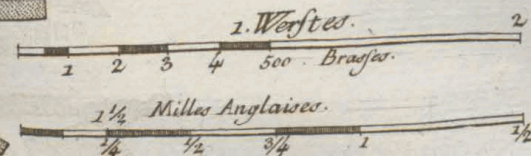 1. Werſtes. 2
1 2 3 4 500 Braſſes.
1 1/2 Milles Anglaises.
1/4 1/2 3/4 1 1/2